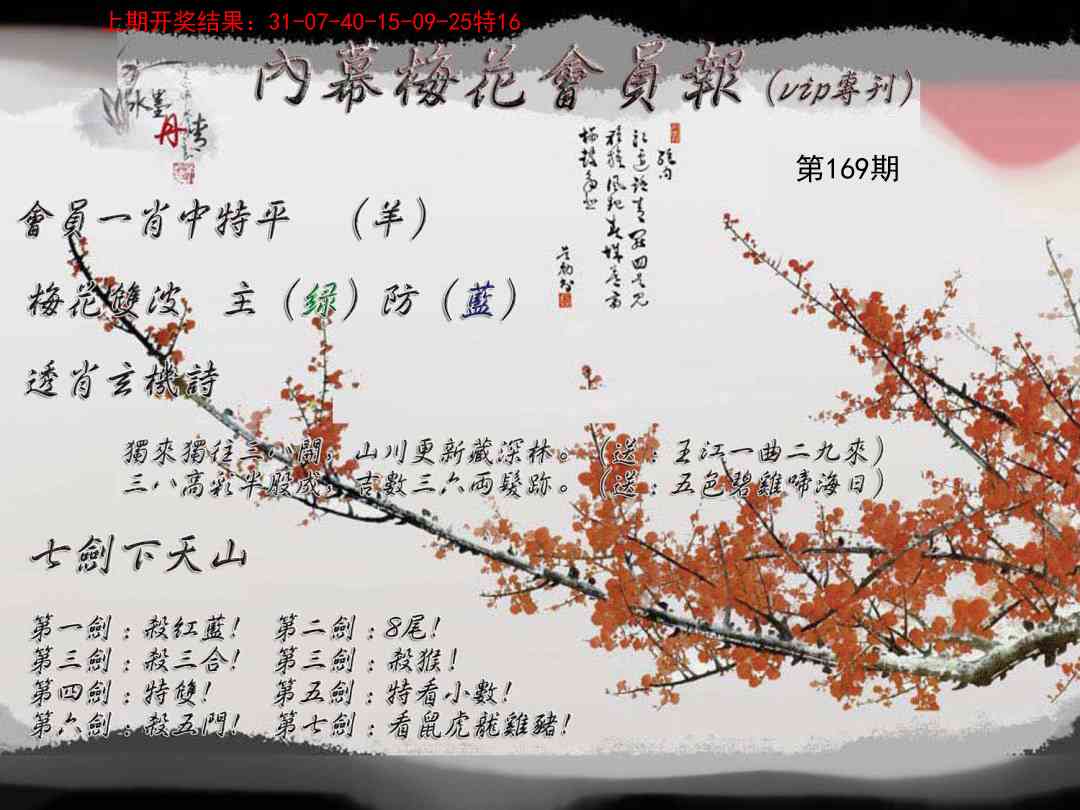 上期开奖结果：31-07-40-15-09-25特16
內幕梅花會員報（vip專刊）
水墨
丹青
第169期
會員一肖中特平 （羊）
梅花雙波 主（绿）防（藍）
透肖玄機詩
獨來獨往三八開，山川更新藏深林。（送：玉江一曲二九來）
三八高彩半股成，吉數三六兩髮跡。（送：五色碧雞啼海日）
七劍下天山
第一劍：殺紅藍！ 第二劍：8尾！
第三劍：殺三合！ 第三劍：殺猴！
第四劍：特雙！ 第五劍：特看小數！
第六劍：殺五門！ 第七劍：看鼠虎龍雞豬！